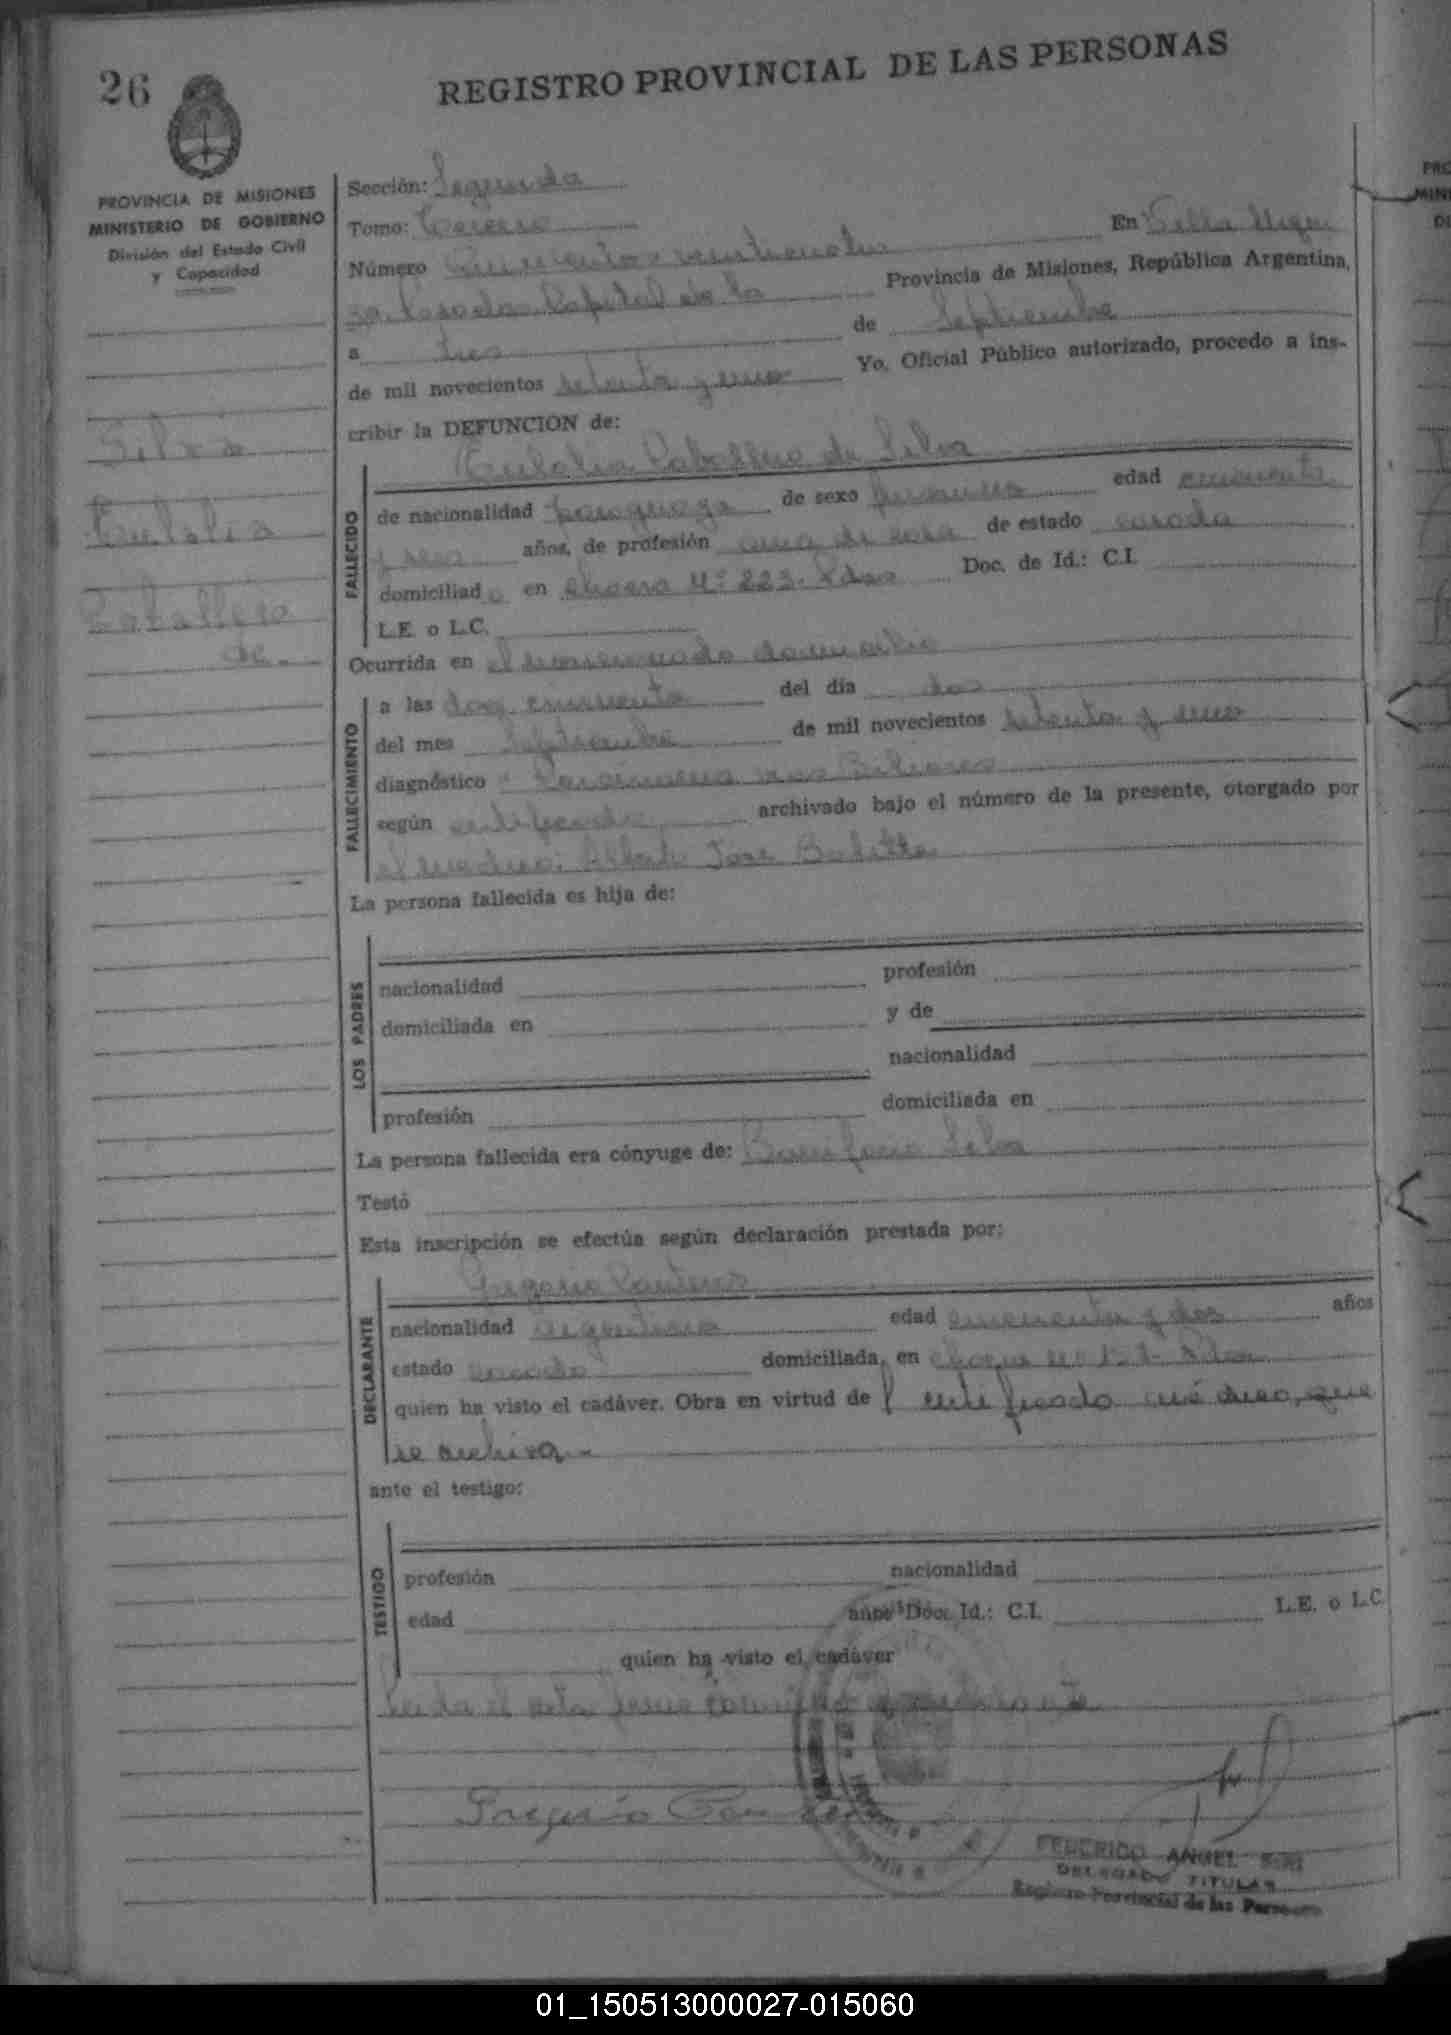 26
REGISTRO PROVINCIAL DE LAS PERSONAS
PROVINCIA DE MISIONES
MINISTERIO DE GOBIERNO
División del Estado Civil
y Capacidad
Silva
Eulalia
Caballero
de.
Sección: Segunda
Tomo: Tercero
Número Quinientos En Villa
Posadas Capital de la Provincia de Misiones, República Argentina,
a tres de Septiembre
de mil novecientos setenta y uno Yo, Oficial Público autorizado, procedo a ins-
cribir la DEFUNCION de:
Eulalia Caballero de Silva
FALLECIDO
de nacionalidad paraguaya de sexo femenino edad cincuenta
y seis años, de profesión ama de casa de estado casada
domiciliad a en Nº 223. Pdas Doc. de Id.: C.I.
L.E. o L.C.
Ocurrida en el mencionado domicilio
FALLECIMIENTO
a las dos cincuenta del día dos
del mes Septiembre de mil novecientos setenta y uno
diagnóstico Carcinoma vias Biliares
según certificado archivado bajo el número de la presente, otorgado por
el medico: Alberto Jose
La persona fallecida es hija de:
LOS PADRES
nacionalidad profesión
domiciliada en y de
nacionalidad
profesión domiciliada en
La persona fallecida era cónyuge de: Bonifacio Silva
Testó
Esta inscripción se efectúa según declaración prestada por:
Gregorio
DECLARANTE
nacionalidad argentino edad cincuenta y dos años
estado casado domiciliada, en Pdas
quien ha visto el cadáver. Obra en virtud de certificado médico, que
se archiva.-
ante el testigo:
TESTIGO
profesión nacionalidad
edad años Doc. Id.: C.I. L.E. o L.C
quien ha visto el cadáver
Leida el acta firma conmigo el declarante
Gregorio
FEDERICO ANGEL
DELEGADO TITULAR
Registro Provincial de las Personas
01_150513000027-015060